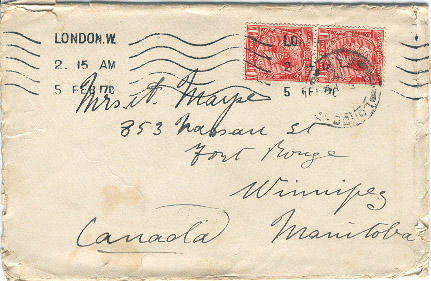 LONDON.W.
2. 15 AM
5 FEB 17C
LO
2
5 FEB 17C
Mrs. A. Marpe
853 Nassau St
Fort Rouge
Winnipeg
Canada Manitoba